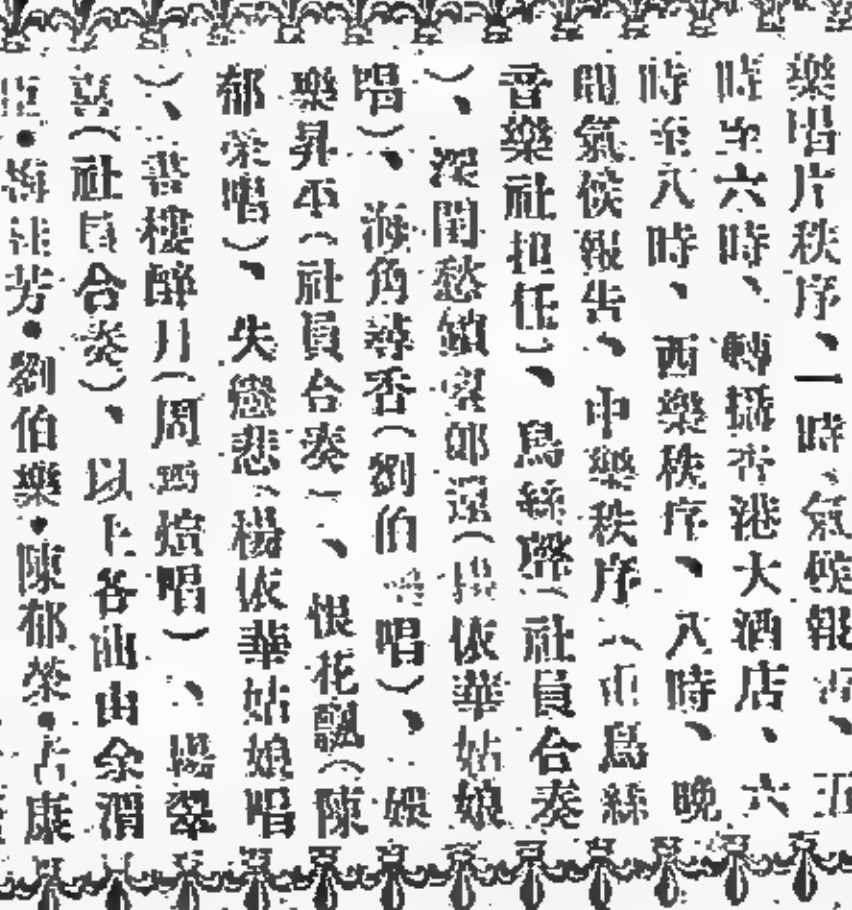 樂唱片秩序、一時、氣候報告、五
時至六時、轉播香港大酒店、六
時至八時、西樂秩序、八時、晚
間氣候報告、中樂秩序（由鳥絲
音樂社担任）、鳥絲聲（社員合奏
）、深閨愁鎖寄郎還（楊依華姑娘
唱）、海角尋香（劉伯樂唱）、娛
樂昇平（社員合奏）、恨花飄（陳
郁榮唱）、失戀悲、楊依華姑娘唱
）、書樓醉月（周煊唱）、楊翠
喜（社員合奏）、以上各曲由余渭
臣•梅桂芳•劉伯樂•陳郁榮•呂康